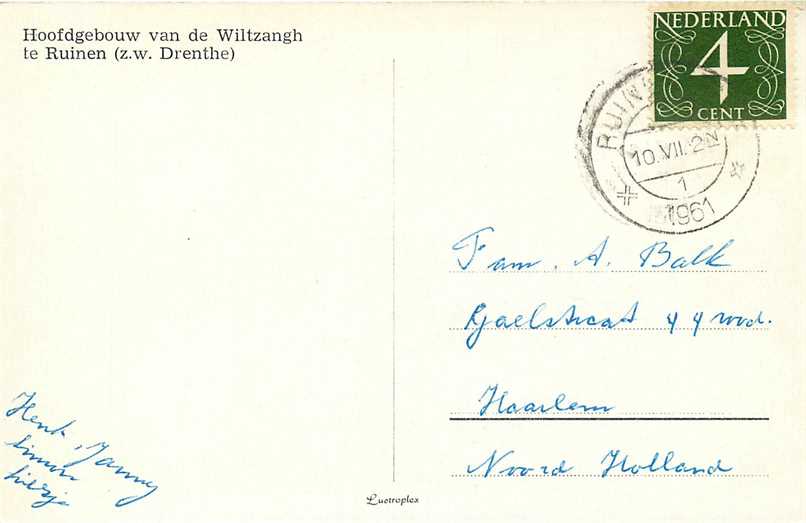 Hoofdgebouw van de Wiltzangh
te Ruinen (z.w. Drenthe)
NEDERLAND
4
CENT
10.VII.2N
1
1961
Fam. A. Balk
44 rood.
Haarlem
Noord Holland
Henk, Janny
Luctroplex